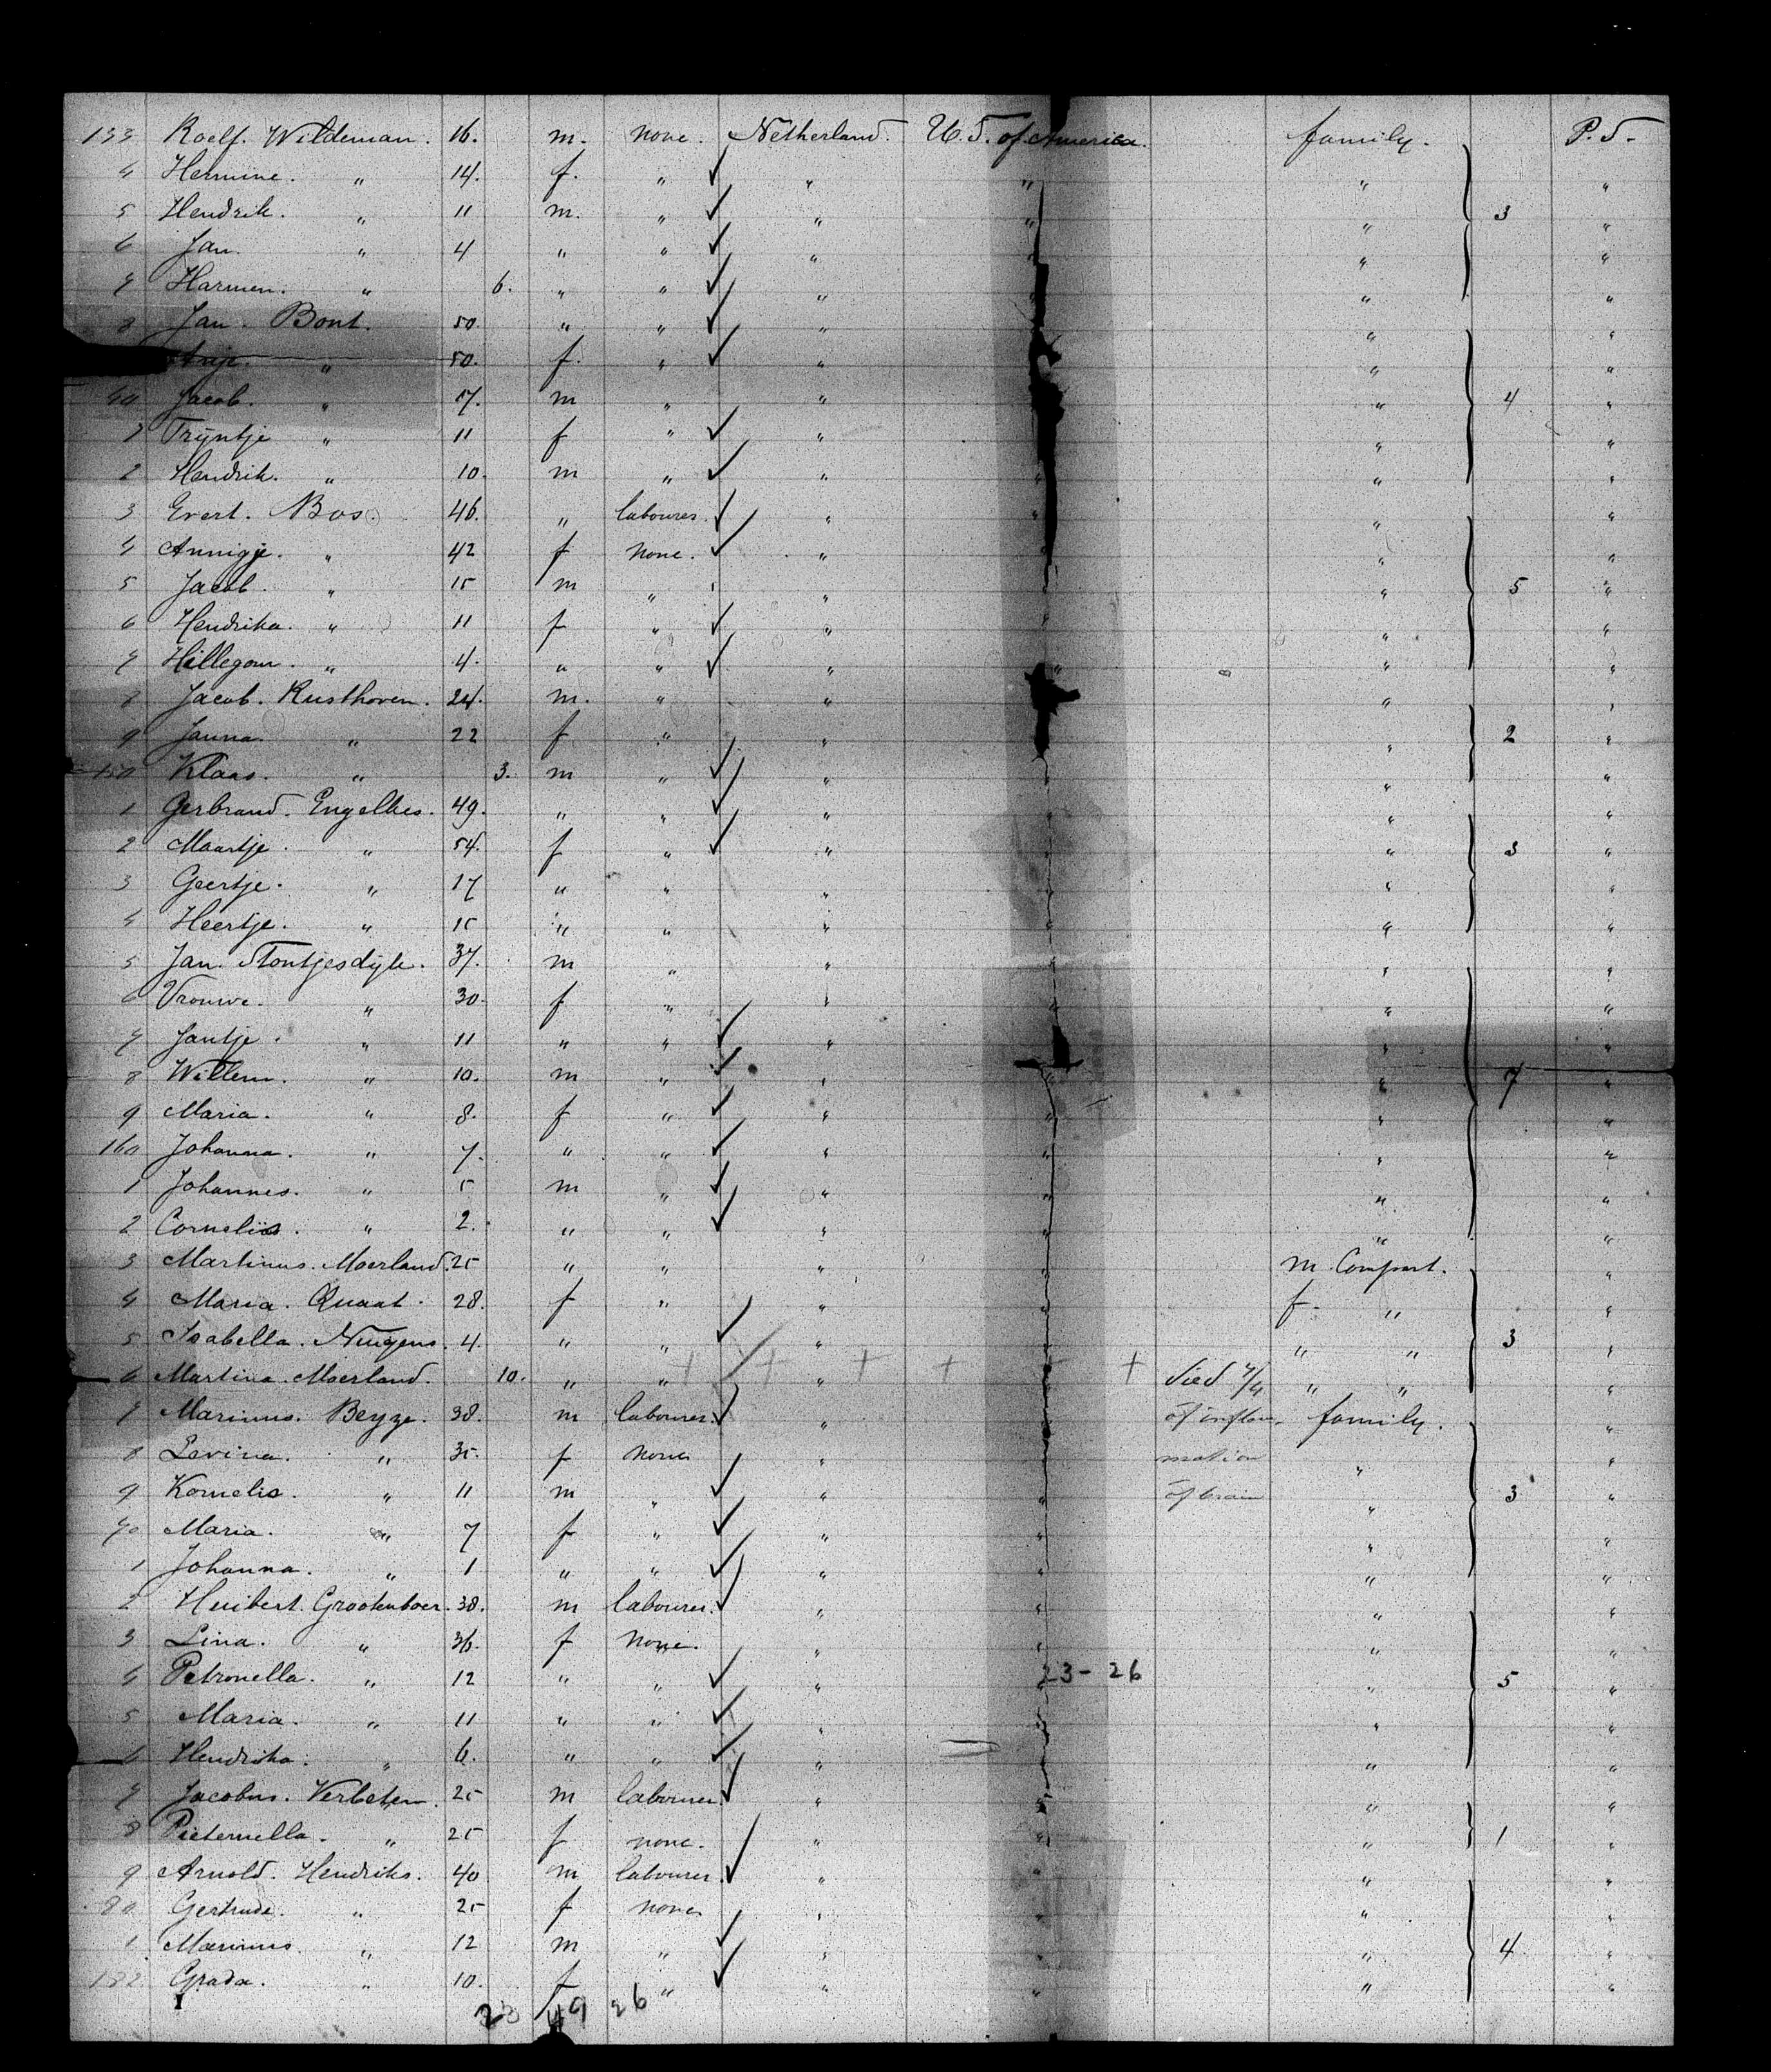 133 Roelf. Wildeman. 16. m. none. Netherland. U. S. of America. family. P. S.
4 Hermine. " 14. f. " " " " "
5 Hendrik. " 11 m. " " " " 3 "
6 Jan. " 4 " " " " " "
7 Harmen. " 6. " " " " " "
8 Jan. Bont. 50. " " " " "
Anje. " 50. f. " " " "
40 Jacob. " 17. m " " " 4 "
1 Trijntje " 11 f " " " "
2 Hendrik. " 10. m " " " " "
3 Evert. Bos. 46. " labourer. " " " "
4 Annigje. " 42 f none. " " " "
5 Jacob. " 15 m " " " 5 "
6 Hendrika. " 11 f " " " " "
7 Hillegom. " 4. " " " " " "
8 Jacob. Rusthoven. 24. m. " " " "
9 Janna. " 22 f " " " 2 "
150 Klaas. " 3. m " " " " "
1 Gerbrand. Engelkes. 49. " " " " " "
2 Maartje. " 54. f " " " " 3 "
3 Geertje. " 17 " " " " " "
4 Heertje. " 15 " " " " " "
5 Jan. Stontjesdijk. 37. m " " " "
6 Vrouwe. " 30. f " " " " "
7 Jantje. " 11 " " " " "
8 Willem. " 10. m " " " " 7 "
9 Maria. " 8. f " " " " "
160 Johanna. " 7. " " " " " "
1 Johannes. " 5 m " " " " "
2 Cornelis. " 2. " " " " " "
3 Martinus. Moerland. 25 " " " m. Compart. "
4 Maria. Quaat. 28. f " " f. " "
5 Isabella. Nuygens. 4. " " " " " 3 "
6 Martina. Moerland. 10. " " " died 7/4 " " "
7 Marinus. Beyze. 38. m labourer. " of inflam- family. "
8 Levina. " 35. f none " mation " "
9 Kornelis. " 11 m " " " of brain " 3 "
70 Maria. " 7 f " " " " "
1 Johanna. " 1 " " " " "
2 Huibert. Grootenboer. 38. m labourer. " " " "
3 Lina. " 36. f none. " " " "
4 Petronella. " 12 " " " 23-26 " 5 "
5 Maria. " 11 " " " " " "
6 Hendrika. " 6. " " " " "
7 Jacobus. Verbeten. 25 m labourer. " " " "
8 Pieternella. " 25 f none. " " " 1 "
9 Arnold. Hendriks. 40 m labourer. " " " "
80 Gertrude. " 25 f none " " " "
1 Marinus. " 12 m " " " " 4 "
182 Grada. " 10. f " " " " "
23 49 26